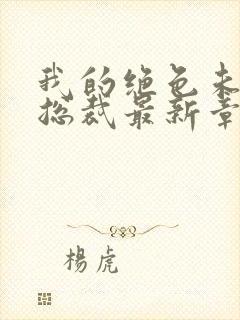 我的绝色未
总裁最新章
楊虎